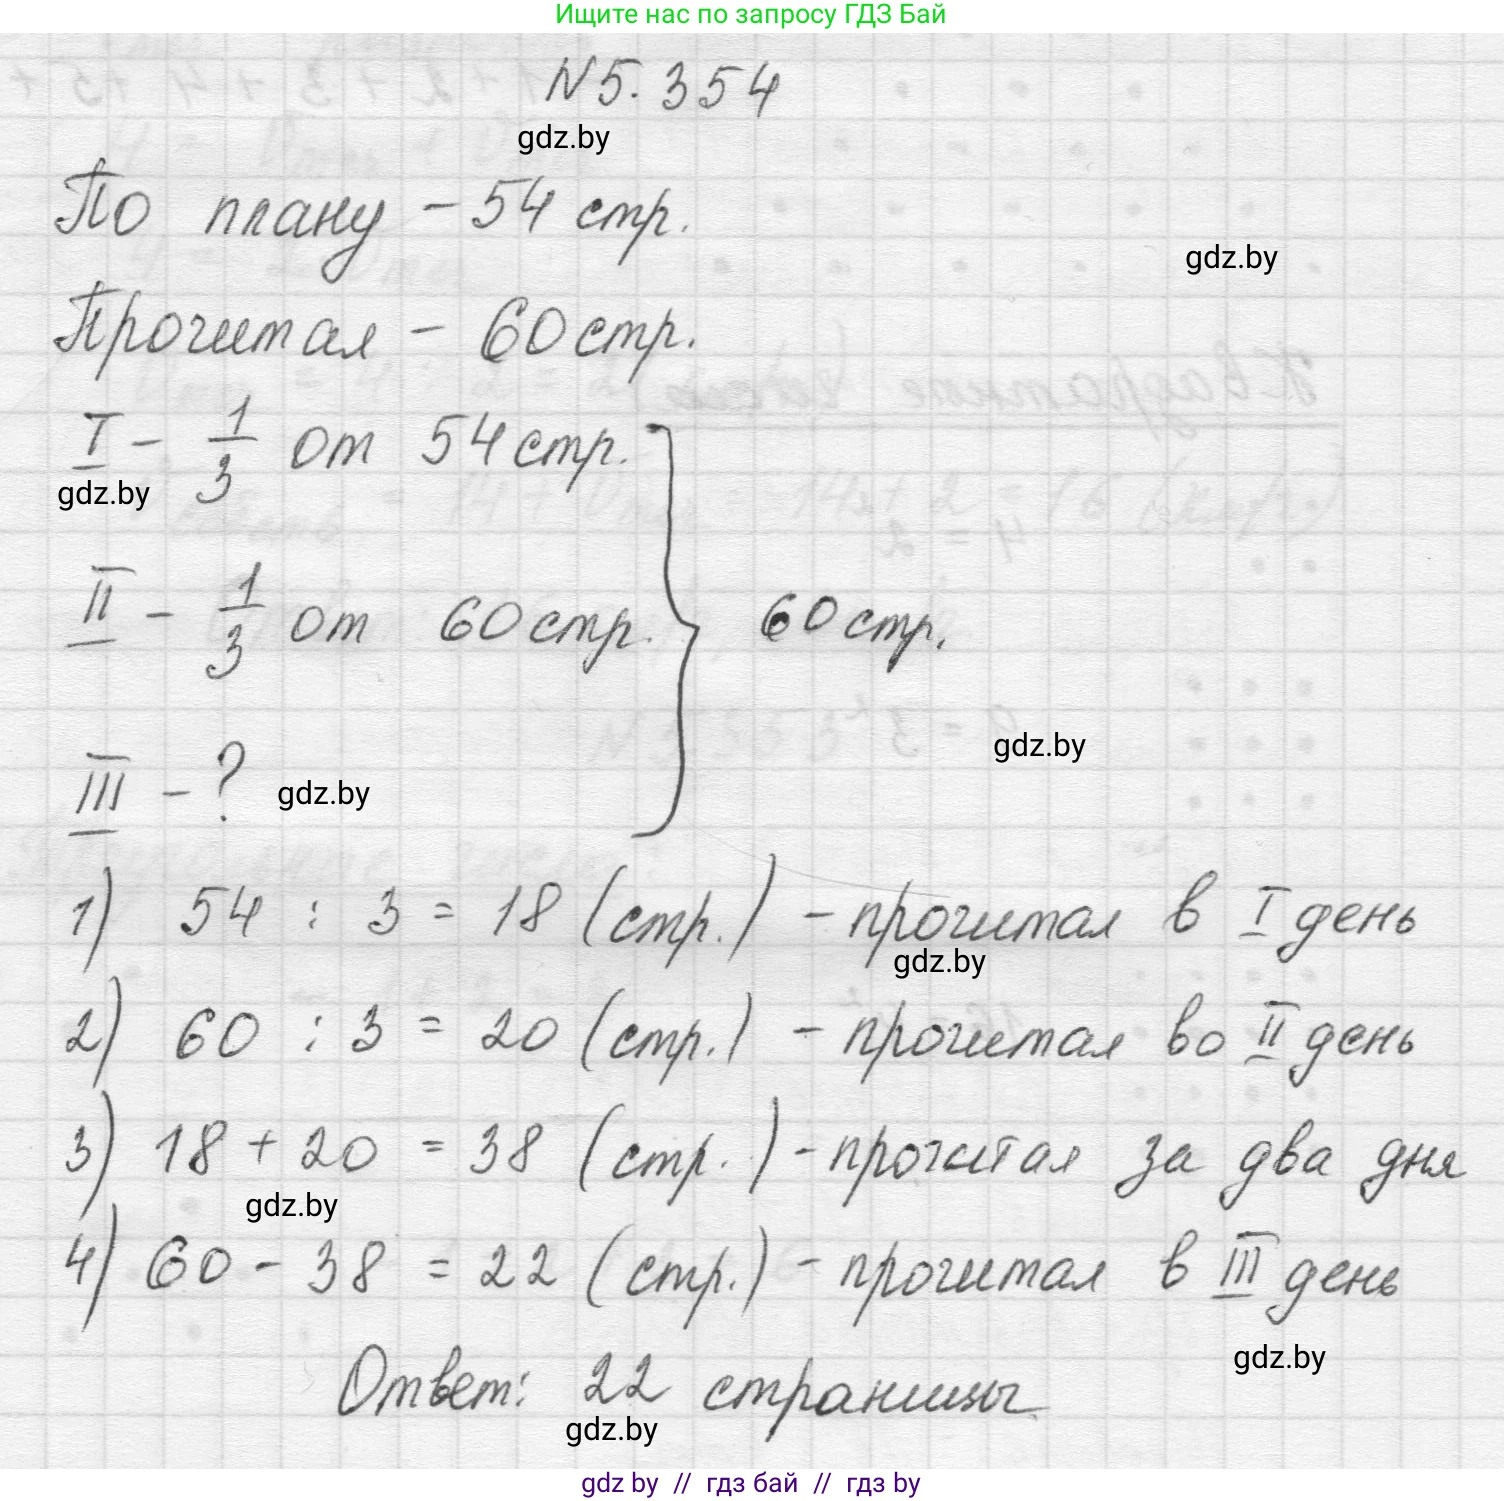 Ищите нас по запросу ГДЗ Бай
N 5.354
gdz.by
По плану – 54 стр.
gdz.by
Прочитал – 60 стр.
I – 1/3 от 54 стр.
gdz.by
II – 1/3 от 60 стр. } 60 стр.
gdz.by
III – ? gdz.by
1) 54 : 3 = 18 (стр.) – прочитал в I день
gdz.by
2) 60 : 3 = 20 (стр.) – прочитал во II день
3) 18 + 20 = 38 (стр.) – прочитал за два дня
gdz.by
4) 60 – 38 = 22 (стр.) – прочитал в III день
gdz.by
Ответ: 22 страницы.
gdz.by
gdz by // гдз бай // гдз by